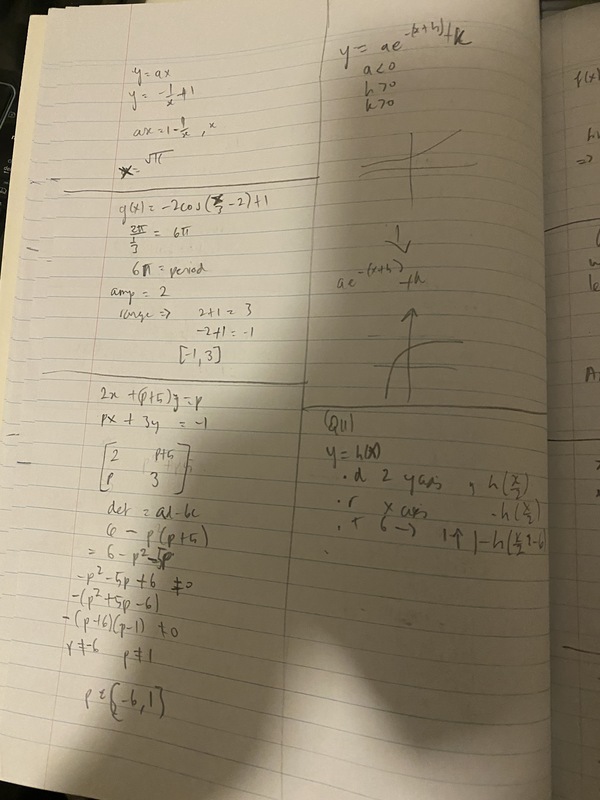 y = ax
y = -1/x + 1
ax = 1 - 1/x , x
x = √π
g(x) = -2cos(x/3 - 2) + 1
2π / 1/3 = 6π
6π = period
amp = 2
range => 2+1 = 3
-2+1 = -1
[-1, 3]
2x + (p+5)y = p
px + 3y = -1
[2 p+5
p 3]
det = ad - bc
6 - p(p+5)
= 6 - p² - 5p
-p² - 5p + 6 ≠ 0
-(p² + 5p - 6)
-(p+6)(p-1) ≠ 0
p ≠ -6 p ≠ 1
{-6, 1}
y = ae^-(x+h) + k
a<0
h>0
k>0
ae^-(x+h) + k
y = h(x)
. d 2 y axis , h(x/2)
. r x axis - h(x/2)
. T 6 -> 1↑
f(x)
=>